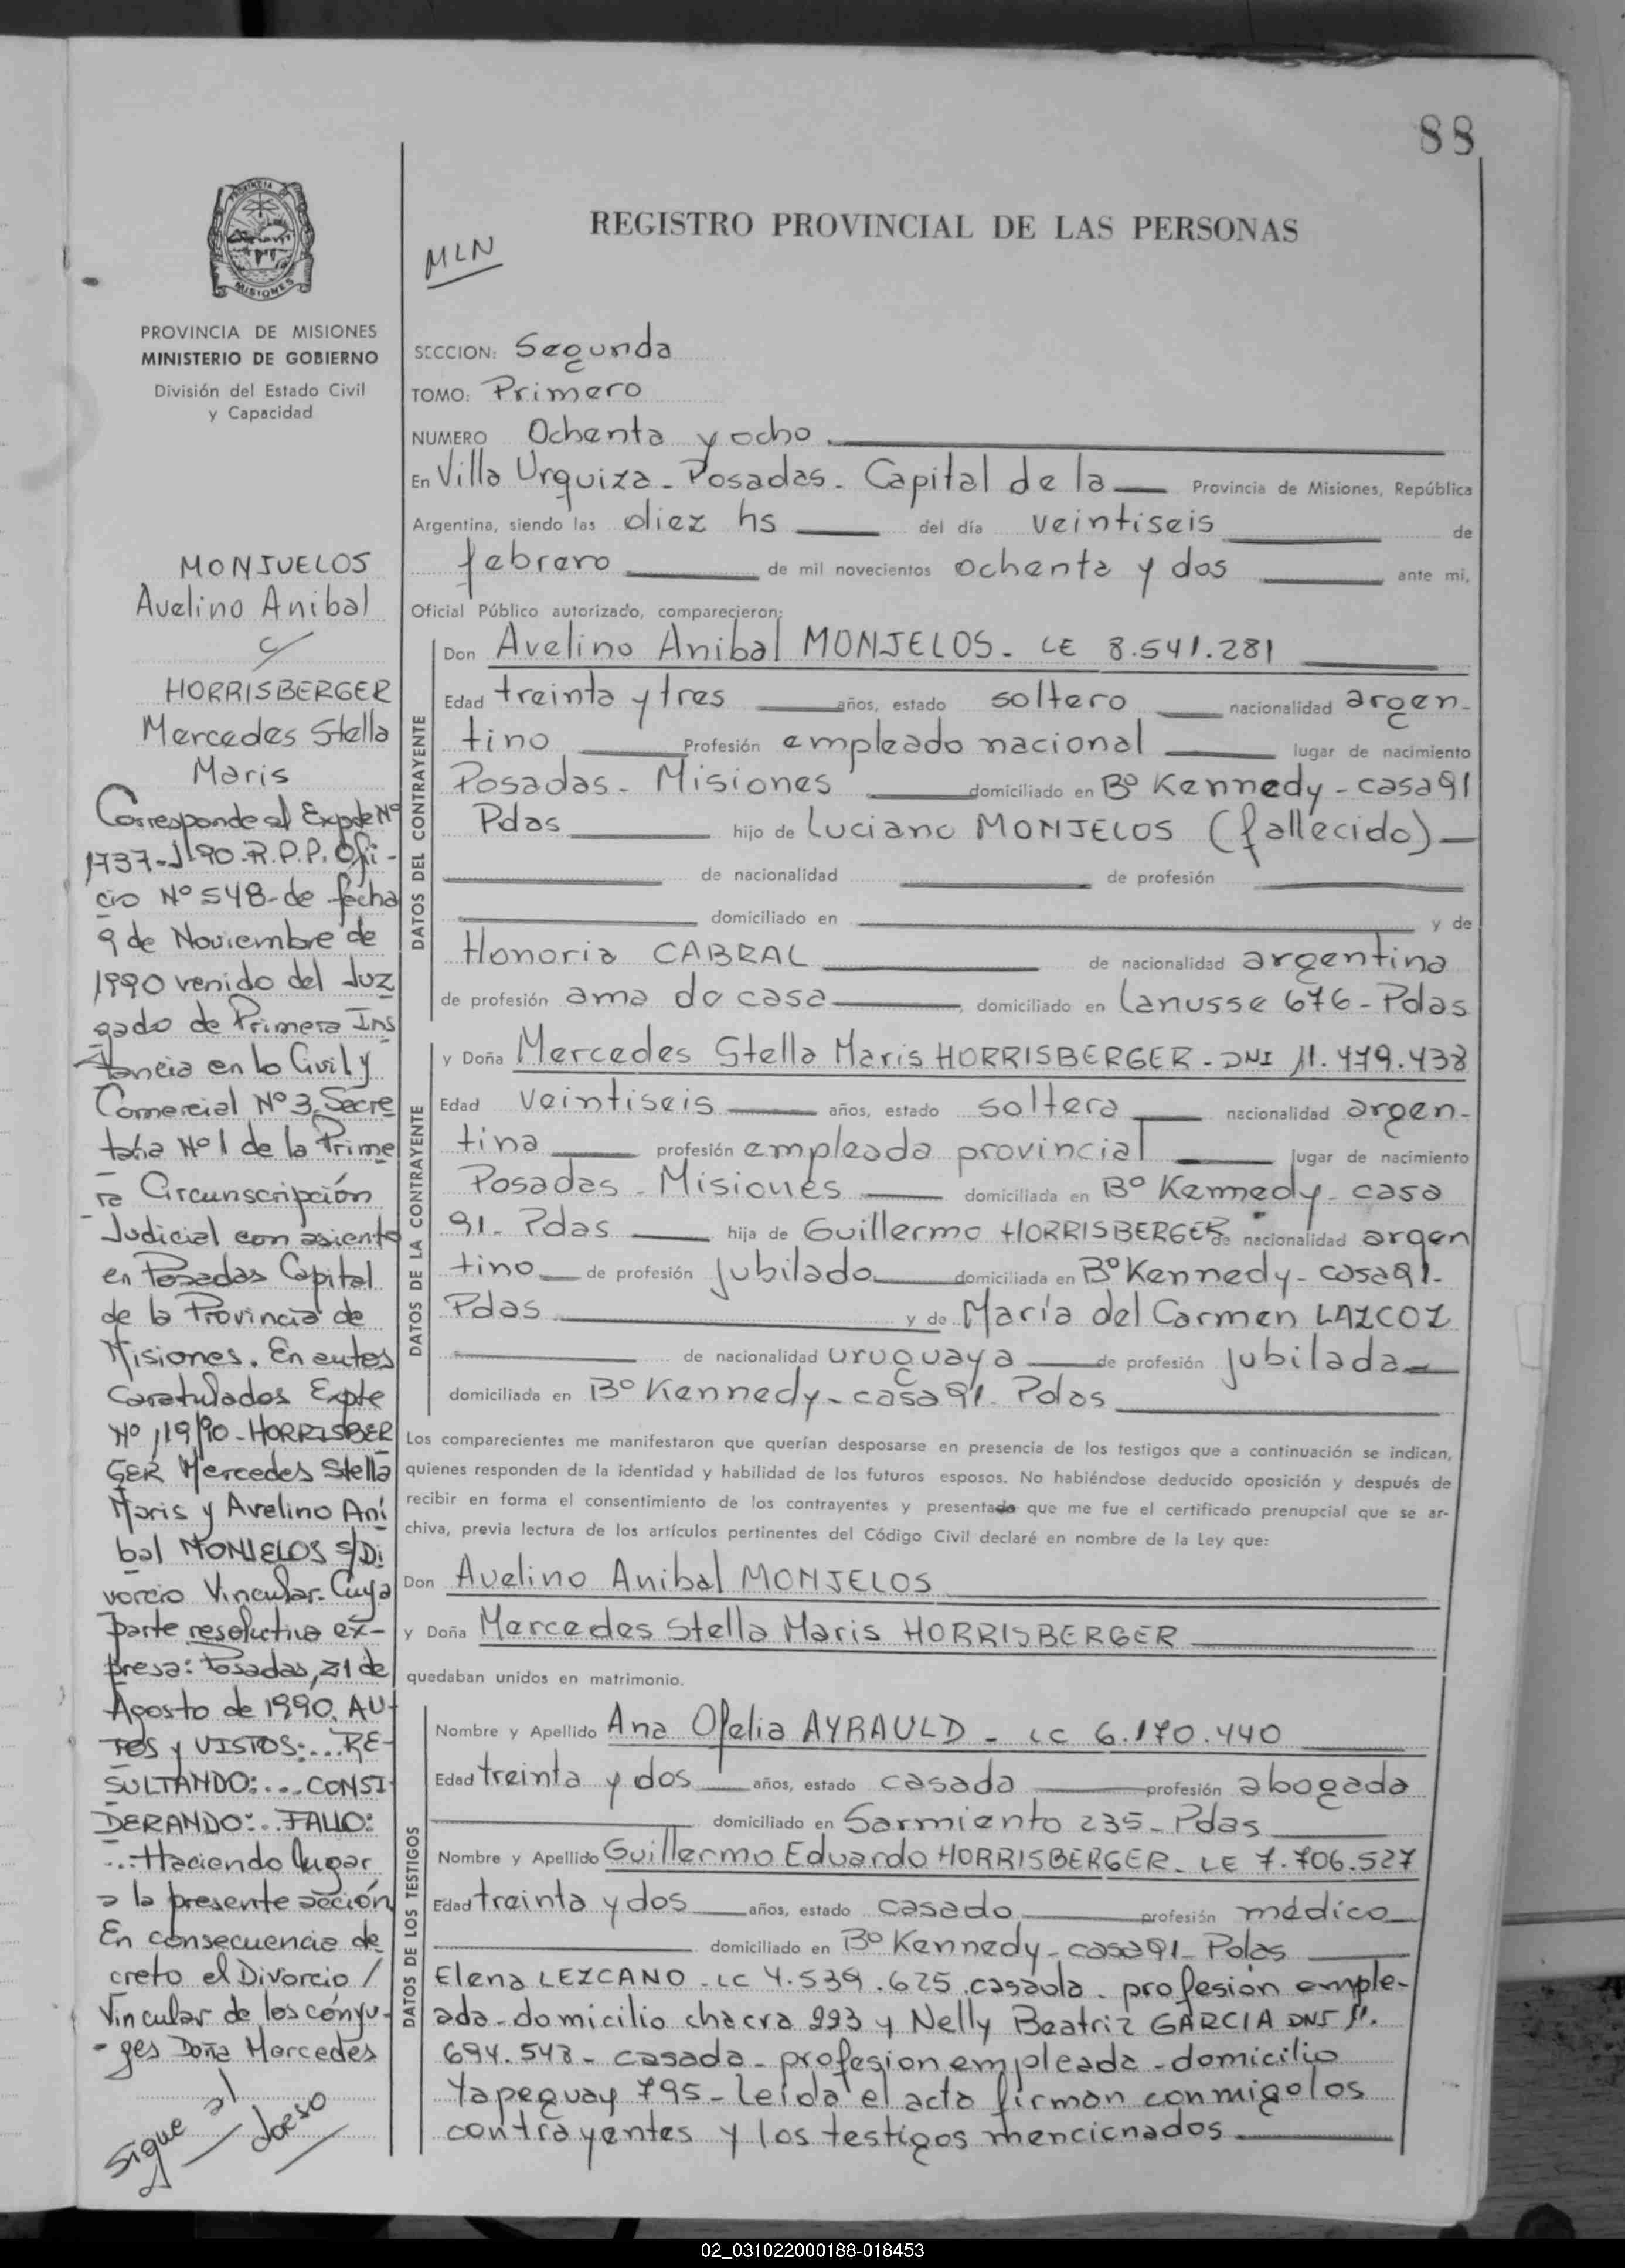 88
REGISTRO PROVINCIAL DE LAS PERSONAS
MLN
PROVINCIA DE MISIONES
MINISTERIO DE GOBIERNO
División del Estado Civil
y Capacidad
SECCION: Segunda
TOMO: Primero
NUMERO Ochenta y ocho
En Villa Urquiza - Posadas - Capital de la Provincia de Misiones, República
Argentina, siendo las diez hs del día veintiseis de
febrero de mil novecientos ochenta y dos ante mi,
Oficial Público autorizado, comparecieron:
MONJUELOS
Avelino Anibal
c/
HORRISBERGER
Mercedes Stella
Maris
Corresponde al Expde Nº
1737-J-90-R.P.P. Ofi-
cio Nº 548-de fecha
9 de Noviembre de
1990 venido del Juz
gado de Primera Ins
tancia en lo Civil y
Comercial Nº 3, Secre
taria Nº 1 de la Prime
ra Circunscripción
Judicial con asiento
en Posadas Capital
de la Provincia de
Misiones. En autos
Caratulados Expte
Nº 119/90-HORRISBER
GER Mercedes Stella
Maris y Avelino Aní
bal MONJELOS S/Di
vorcio Vincular-Cuya
parte resolutiva ex-
presa: Posadas, 21 de
Agosto de 1990. AU-
TOS y VISTOS:...RE-
SULTANDO:...CONSI-
DERANDO:..FALLO:
...Haciendo lugar
a la presente acción
En consecuencia de
creto el Divorcio /
Vincular de los cónyu-
-ges Doña Mercedes
Sigue al dorso
DATOS DEL CONTRAYENTE
Don Avelino Anibal MONJELOS - LE 8.541.281
Edad treinta y tres años, estado soltero nacionalidad argen-
tino Profesión empleado nacional lugar de nacimiento
Posadas - Misiones domiciliado en Bº Kennedy - casa 91
Pdas hijo de Luciano MONJELOS (fallecido)
de nacionalidad de profesión
domiciliado en y de
Honoria CABRAL de nacionalidad argentina
de profesión ama de casa, domiciliado en Lanusse 676 - Pdas
DATOS DE LA CONTRAYENTE
y Doña Mercedes Stella Maris HORRISBERGER - DNI 11.479.438
Edad veintiseis años, estado soltera nacionalidad argen-
tina profesión empleada provincial lugar de nacimiento
Posadas - Misiones domiciliada en Bº Kennedy - casa
91 - Pdas hija de Guillermo HORRISBERGER de nacionalidad argen
tino de profesión jubilado domiciliada en Bº Kennedy - casa 91 -
Pdas y de María del Carmen LAZCOZ
de nacionalidad uruguaya de profesión jubilada
domiciliada en Bº Kennedy - casa 91 - Pdas
Los comparecientes me manifestaron que querían desposarse en presencia de los testigos que a continuación se indican,
quienes responden de la identidad y habilidad de los futuros esposos. No habiéndose deducido oposición y después de
recibir en forma el consentimiento de los contrayentes y presentado que me fue el certificado prenupcial que se ar-
chiva, previa lectura de los artículos pertinentes del Código Civil declaré en nombre de la Ley que:
Don Avelino Anibal MONJELOS
y Doña Mercedes Stella Maris HORRISBERGER
quedaban unidos en matrimonio.
DATOS DE LOS TESTIGOS
Nombre y Apellido Ana Ofelia AYRAULD - LC 6.170.440
Edad treinta y dos años, estado casada profesión abogada
domiciliado en Sarmiento 235 - Pdas
Nombre y Apellido Guillermo Eduardo HORRISBERGER - LE 7.706.527
Edad treinta y dos años, estado casado profesión médico
domiciliado en Bº Kennedy - casa 91 - Pdas
Elena LEZCANO - LC 4.539.625 casada - profesión emple-
ada - domicilio chacra 223 y Nelly Beatriz GARCIA DNI 11.
694.548 - casada - profesion empleada - domicilio
Yapeguay 795 - leída el acta firman conmigo los
contrayentes y los testigos mencionados
02_031022000188-018453